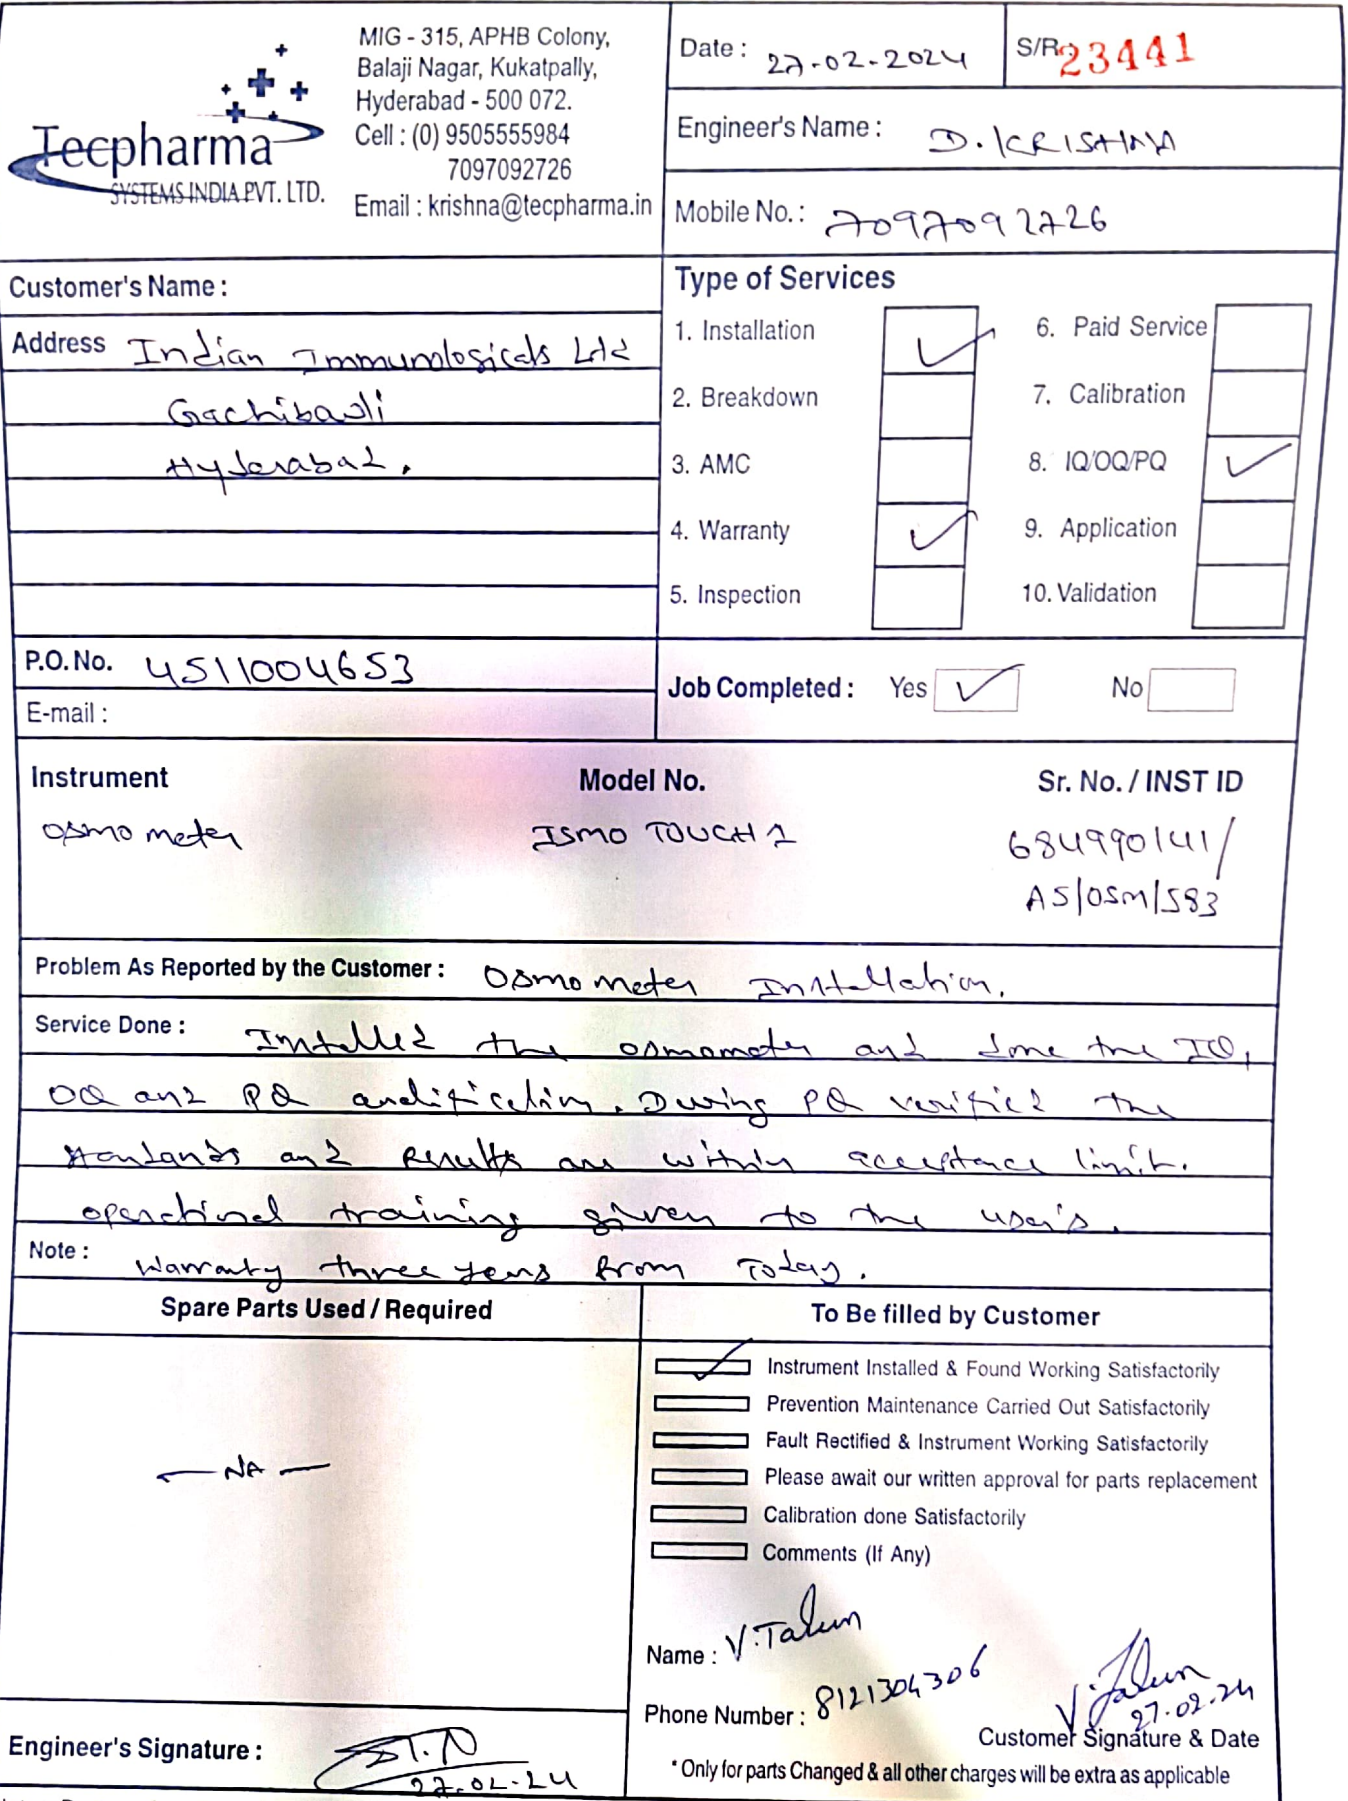 Tecpharma
SYSTEMS INDIA PVT. LTD.
MIG - 315, APHB Colony,
Balaji Nagar, Kukatpally,
Hyderabad - 500 072.
Cell : (0) 9505555984
7097092726
Email : krishna@tecpharma.in
Date : 27-02-2024
S/R 23441
Engineer's Name : D. KRISHNA
Mobile No. : 7097092726
Customer's Name :
Address Indian Immunologicals Ltd
Gachibauli
Hyderabad.
P.O. No. 4511004653
E-mail :
Type of Services
1. Installation ✓
2. Breakdown
3. AMC
4. Warranty ✓
5. Inspection
6. Paid Service
7. Calibration
8. IQ/OQ/PQ ✓
9. Application
10. Validation
Job Completed : Yes ✓ No
Instrument Model No. Sr. No. / INST ID
Osmometer ISMO TOUCH 1 684990141/
AS/OSM/583
Problem As Reported by the Customer : Osmometer Installation.
Service Done : Installed the osmometer and done the IQ,
OQ and PQ qualification. During PQ verified the
standards and results are within acceptance limit.
operational training given to the user's.
Note : Warranty three years from Today.
Spare Parts Used / Required
— NA —
To Be filled by Customer
✓ Instrument Installed & Found Working Satisfactorily
Prevention Maintenance Carried Out Satisfactorily
Fault Rectified & Instrument Working Satisfactorily
Please await our written approval for parts replacement
Calibration done Satisfactorily
Comments (If Any)
Name : V. Tarun
Phone Number : 8121304306
27.02.24
Customer Signature & Date
* Only for parts Changed & all other charges will be extra as applicable
Engineer's Signature :
27-02-24